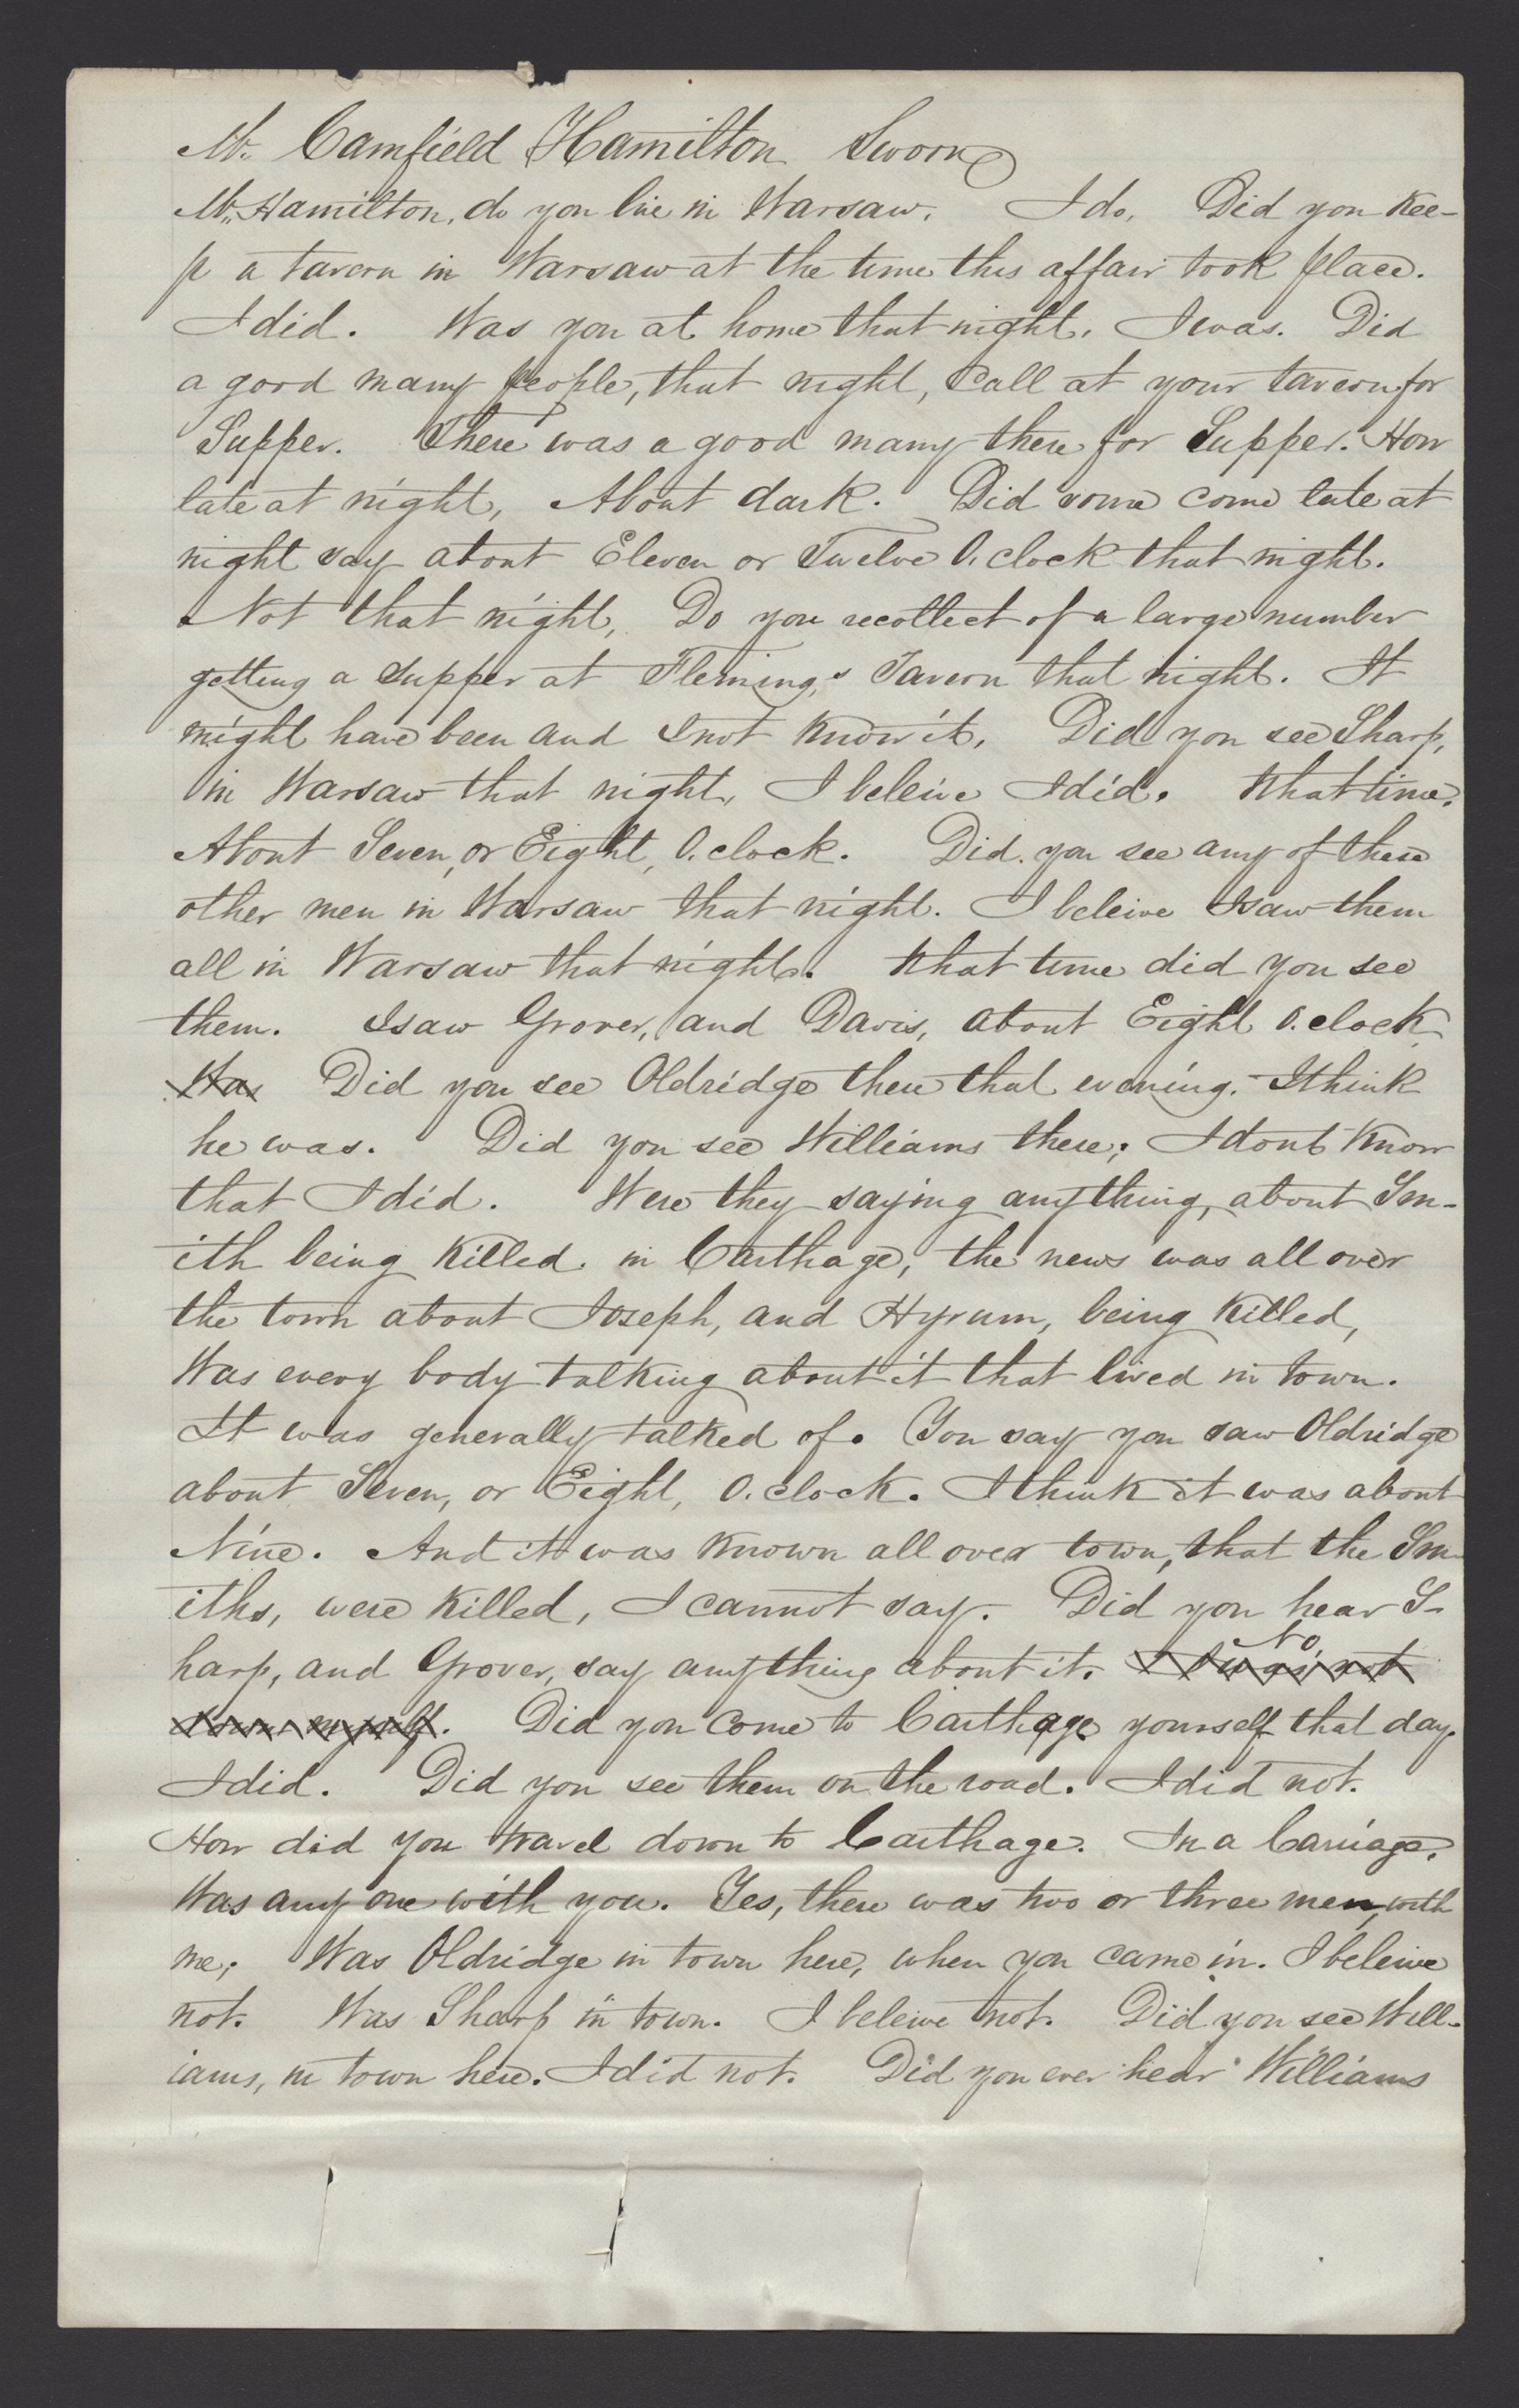 Mr. Camfield Hamilton Sworn
Mr. Hamilton, do you live in Warsaw. I do. Did you Kee-
p a tavern in Warsaw at the time this affair took place.
I did. Was you at home that night. I was. Did
a good many people, that night, Call at your tavern for
Supper. There was a good many there for Supper. How
late at night, About dark. Did some come late at
night say about Eleven or Twelve O.clock that night.
Not that night, Do you recollect of a large number
getting a supper at Fleming,s Tavern that night. It
might have been and I not Know it, Did you see Sharp,
in Warsaw that night, I beleive I did. What time.
About Seven, or Eight, O.clock. Did you see any of these
other men in Warsaw that night. I beleive I saw them
all in Warsaw that night. What time did you see
them. I saw Grover, and Davis, about Eight O.clock,
Was Did you see Oldridge there that evening. I think
he was. Did you see Williams there; I dont Know
that I did. Were they saying anything, about Sm-
ith being Killed. in Carthage, the news was all over
the town about Joseph, and Hyrum, being Killed,
Was every body talking about it that lived in town.
It was generally talked of. You say you saw Oldridge
about Seven, or Eight, O.clock. I think it was about
Nine. And it was Known all over town, that the Sm-
iths, were Killed, I cannot say. Did you hear S-
harp, and Grover, say anything about it. No
Did you Come to Carthage yourself that day.
I did. Did you see them on the road. I did not.
How did you travel down to Carthage. In a Carriage.
Was any one with you. Yes, there was two or three men, with
me; Was Oldridge in town here, when you came in. I beleive
not. Was Sharp in town. I beleive not. Did you see Will-
iams, in town here. I did not. Did you ever hear Williams